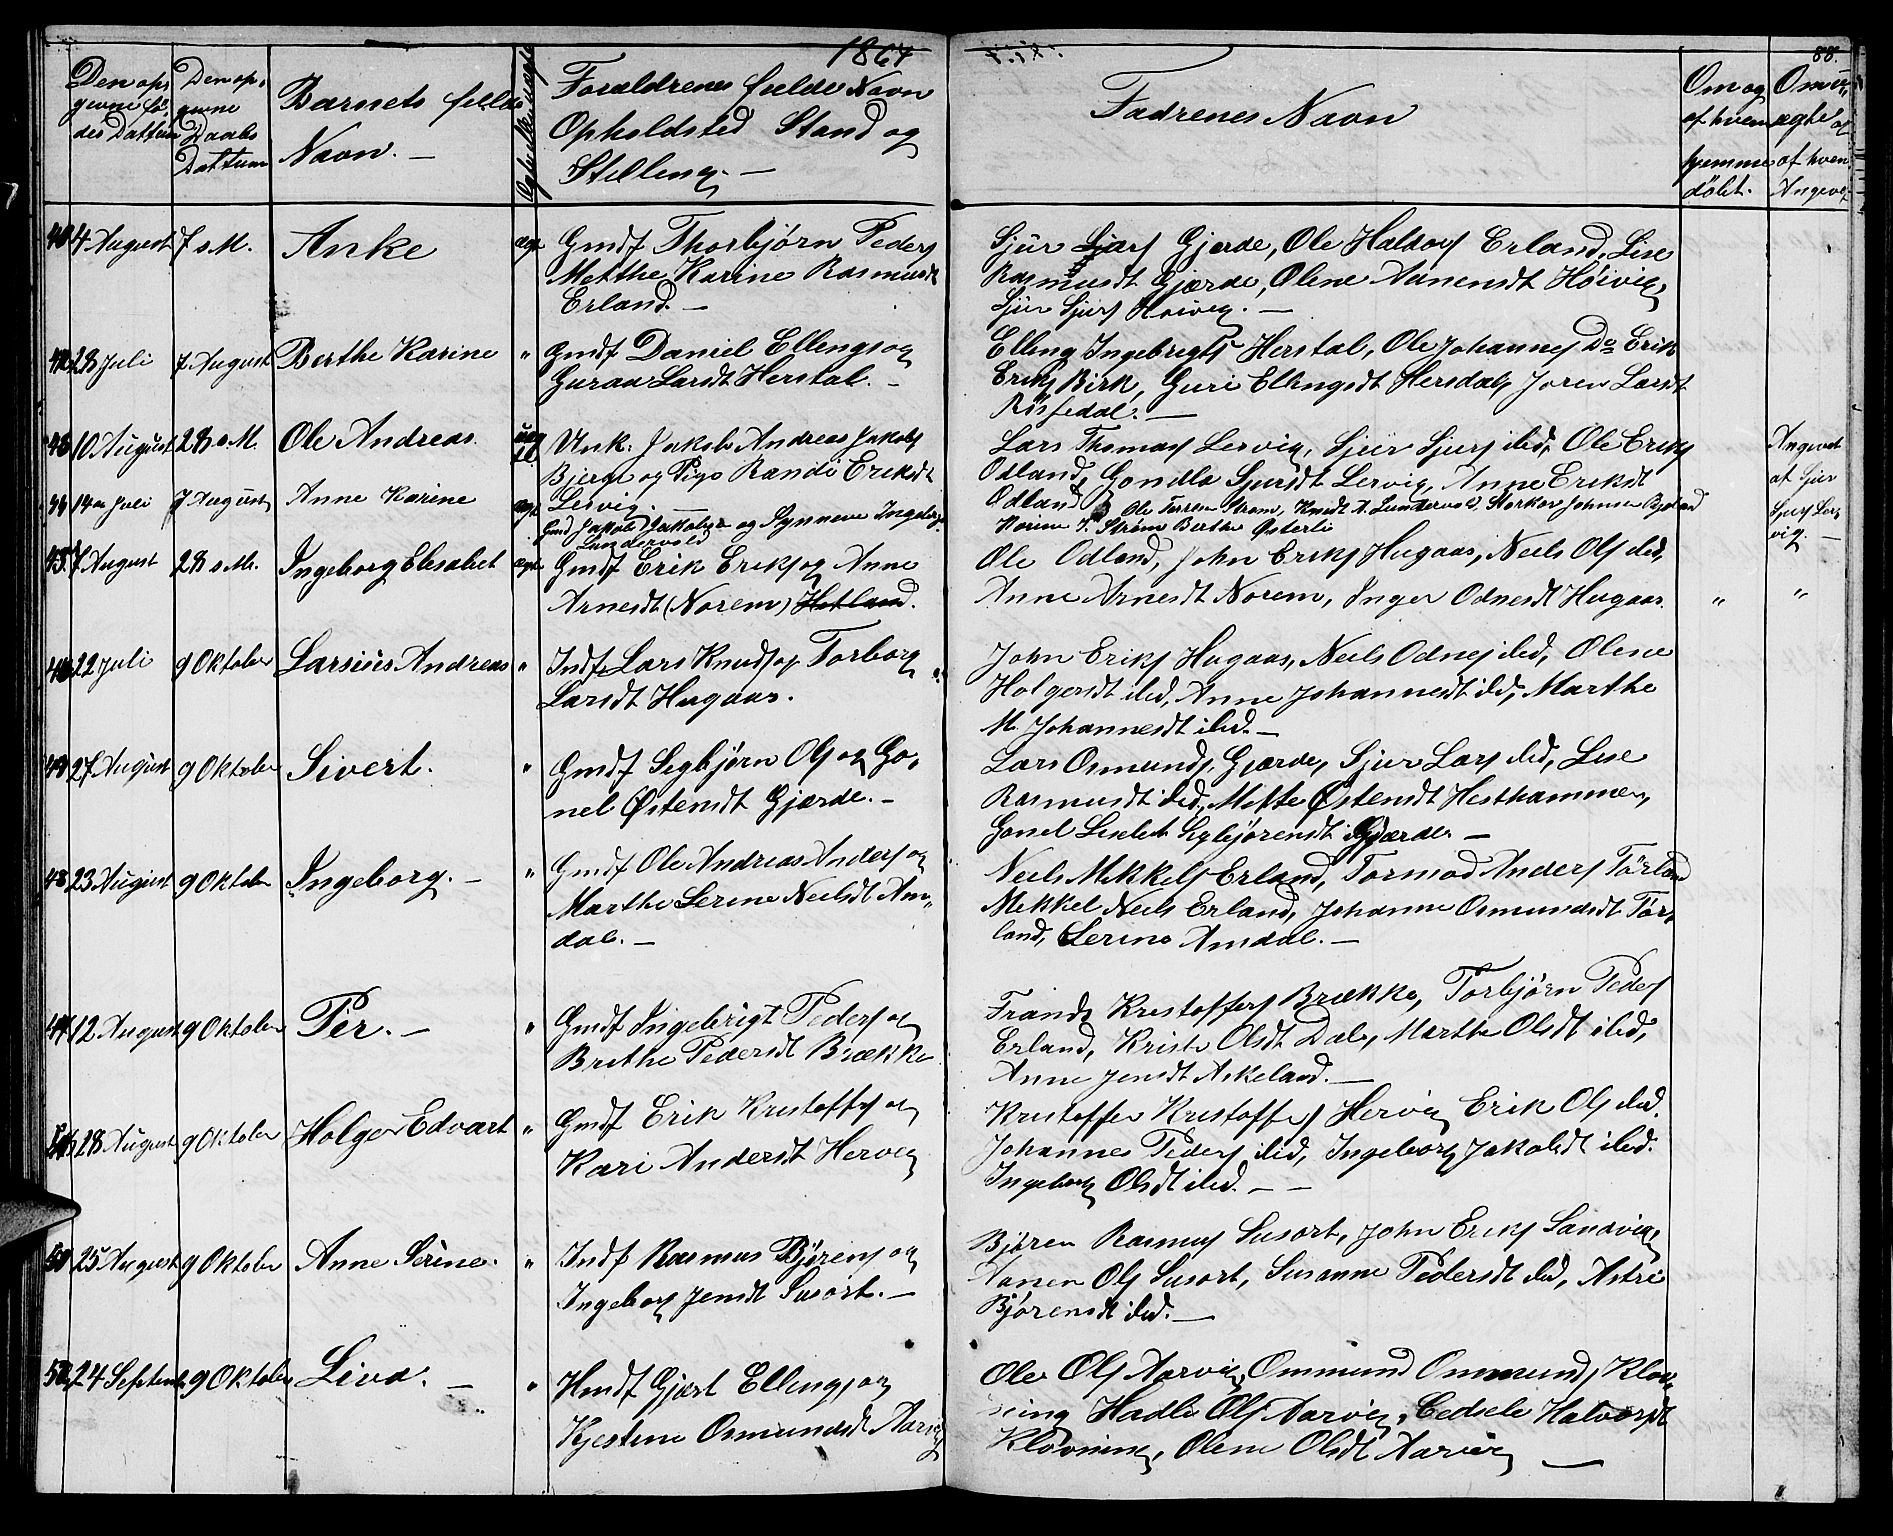 1864
88.
Den op,
gevne fø,
des Dattum
Den op,
gevne
Daabs
Dattum
Barnets fulde
Navn. —
Forældrenes fulde Navn
Opholdsted Stand og
Stelling. —
Fadrenes Navn
Om og
af hvem
hjemme
døbt.
Om
ægte
af hvem
Angevet
4 August 7 s. M. Anke ægt Gmdf Thorbjørn Peders
Metthe Karine Rasmusdt
Erland. —
Sjur Larss Gjerde, Ole Haldors Erland, Lise
Rasmusdt Gjærde, Olene Aanensdt Høivig,
Sjur Sjurs Høivig. —
28 Juli 7 August Berthe Karine " Gmdf Daniel Ellengs og
Guraa Larsdt Herstal. —
Elleng Ingebregts Herstal, Ole Johannes Do Erik
Eriks Birk, Guri Ellingsdt Hersdal, Joren Larsdt
Røsfedal. —
10 August 28 s. M. Ole Andreas Unk. Jakob Andreas Jakobs
Bjerge og Pige Randi Eriksdt
Lervig. —
Lars Thomas Lervig, Sjur Sjurs ibd, Ole Eriks
Odland, Gondla Sjursdt Lervig, Anne Eriksdt
Odland
Angevet
af Sjur
Sjurs Ler,
vig. —
44 14 Juli 7 August Anne Karine ægt Gmd Jakob Jakobsen og Synneve Ingebr.
Lundervold
Ole Strøm, Knudt A. Lundervold, Storker Johnsen
Karine Strøm Berthe Østerli
45 7 August 28 s. M. Ingeborg Elisabet ægt Gmdf Erik Eriks og Anne
Arnesdt (Norem) Hetland.
Ole Odland, John Eriks Hugaas, Neils Ols ibd,
Anne Arnesdt Norem, Inger Odnesdt Hugaas. " "
46 22 Juli 9 Oktober Larsius Andreas " Indf Lars Knuds og Torborg
Larsdt Hugaas.
John Eriks Hugaas, Neils Odnes ibd, Olene
Holgersdt ibd, Anne Johannesdt ibd, Marthe
M. Johannesdt ibd. —
27 August 9 Oktober Sivert. " Gmdf Segbjørn Ols og Go,
nel Østensdt Gjærde. —
Lars Osmunds, Gjærde, Sjur Lars ibd, Lise
Rasmusdt ibd, Mette Østensdt Hesthammer,
Gonel Lisebet Segbjørensdt Gjærde. —
48 23 August 9 Oktober Ingeborg. — " Gmdf Ole Andreas Anders og
Marthe Serine Neilsdt Am,
dal. —
Neils Mikkels Erland, Tormod Anders Førland
Mekkel Neils Erland, Johanne Osmundsdt Før,
land, Serine Amdal. —
12 August 9 Oktober Per. — " Gmdf Ingebrigt Peders og
Brethe Pedersdt Brække
Frands Krestoffers Brække, Torbjørn Peders
Erland, Kristi Olsdt Dale, Marthe Olsdt ibid,
Anne Jensdt Askeland. —
28 August 9 Oktober Holger Edvart " Gmdf Erik Krestoffs og
Kari Andersdt Hervig
Krestoffer Krestoffers Hervig Erik Ols ibd.
Johannes Peders ibd, Ingeborg Jakobsdt ibd.
Ingeborg Olsdt ibd. — —
25 August 9 Oktober Anne Serine. " Indf Rasmus Bjørens og
Ingeborg Jensdt Susort. —
Bjøren Rasmus Susort, John Eriks Sandvig,
Aanen Ols Susort, Susanne Pedersdt ibd, Astri
Bjørensdt ibd. —
50 24 Septem 9 Oktober Liva. — " Hmdf Gjert Ellengs og
Kjestine Osmundsdt Aarvig
Ole Ols Aarvig, Ommund Ommunds Kløv,
ning Hadle Ols Aarvig, Cedsele Halvorsdt
Kløvning, Olene Olsdt Aarvig —